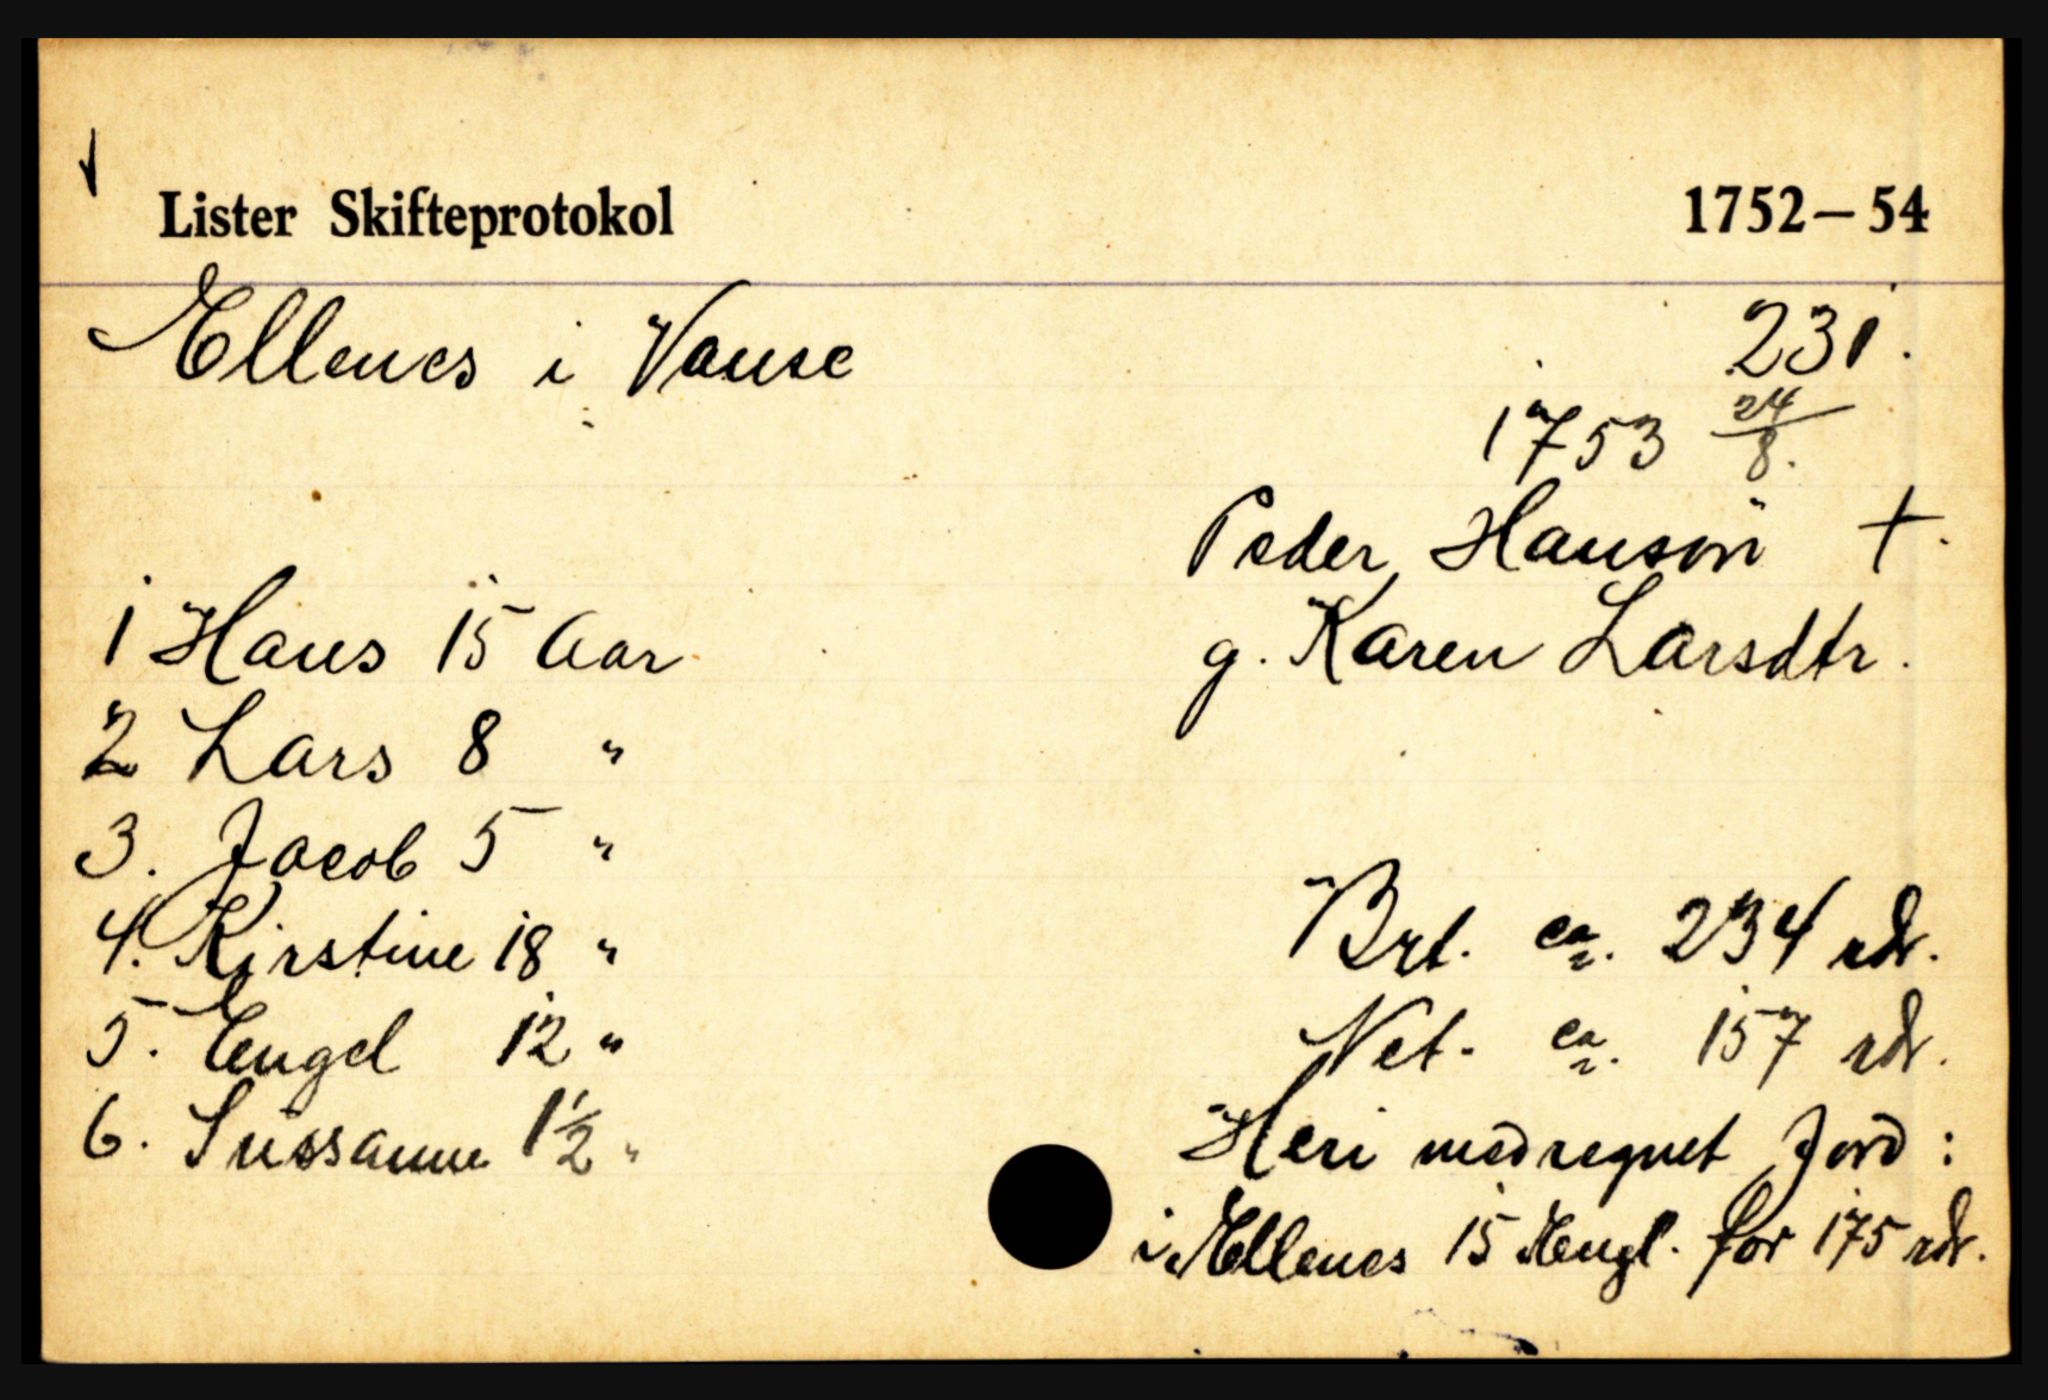 Lister Skifteprotokol 1752–54
Ellenes i Vanse 231.
1753 24/8.
Peder Hansøn +.
1 Hans 15 Aar g. Karen Larsdtr.
2 Lars 8 "
3. Jacob 5 "
4. Kirstine 18 " Brt. ca. 234 rdr.
5. Engel 12 " Net. ca. 157 rdr.
6. Sussanne 1½ " Heri medregnet Jord:
i Ellenes 15 Engl. for 175 rdr.